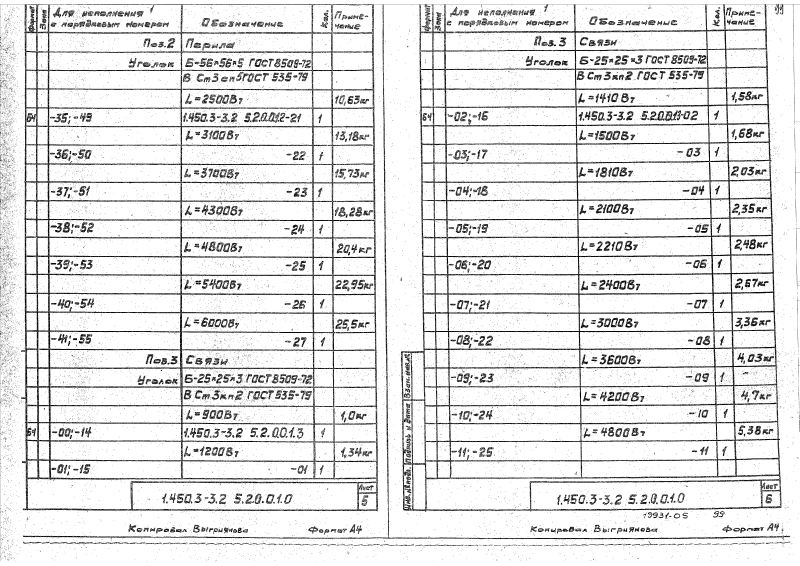 Формат
Зона
Для исполнения 1
с порядковым номером
Обозначение
Кол.
Приме-
чание
Поз.2 Перила
Уголок Б-56×56×5 ГОСТ 8509-72
В Ст3сп5 ГОСТ 535-79
L=2500Вт 10,63кг
Б4 -35;-49 1.450.3-3.2 5.2.0.0.1.2-21 1
L=3100Вт 13,18кг
-36;-50 -22 1
L=3700Вт 15,73кг
-37;-51 -23 1
L=4300Вт 18,28кг
-38;-52 -24 1
L=4800Вт 20,4кг
-39;-53 -25 1
L=5400Вт 22,95кг
-40;-54 -26 1
L=6000Вт 25,5кг
-41;-55 -27 1
Поз.3 Связи
Уголок Б-25×25×3 ГОСТ 8509-72
В Ст3кп2 ГОСТ 535-79
L=900Вт 1,0кг
Б4 -00;-14 1.450.3-3.2 5.2.0.0.1.3 1
L=1200Вт 1,34кг
-01;-15 -01 1
1.450.3-3.2 5.2.0.0.1.0
Лист
5
Копировал Выгриянова Формат А4
99
Формат
Зона
Для исполнения 1
с порядковым номером
Обозначение
Кол.
Приме-
чание
Поз.3 Связи
Уголок Б-25×25×3 ГОСТ 8509-72
В Ст3кп2 ГОСТ 535-79
L=1410Вт 1,58кг
Б4 -02;-16 1.450.3-3.2 5.2.0.0.1.3-02 1
L=1500Вт 1,68кг
-03;-17 -03 1
L=1810Вт 2,03кг
-04;-18 -04 1
L=2100Вт 2,35кг
-05;-19 -05 1
L=2210Вт 2,48кг
-06;-20 -06 1
L=2400Вт 2,67кг
-07;-21 -07 1
L=3000Вт 3,36кг
-08;-22 -08 1
L=3600Вт 4,03кг
-09;-23 -09 1
L=4200Вт 4,7кг
-10;-24 -10 1
L=4800Вт 5,38кг
-11;-25 -11 1
Инв.№подл. Подпись и дата Взам.инв.№
1.450.3-3.2 5.2.0.0.1.0
Лист
6
19931-05 99
Копировал Выгриянова Формат А4